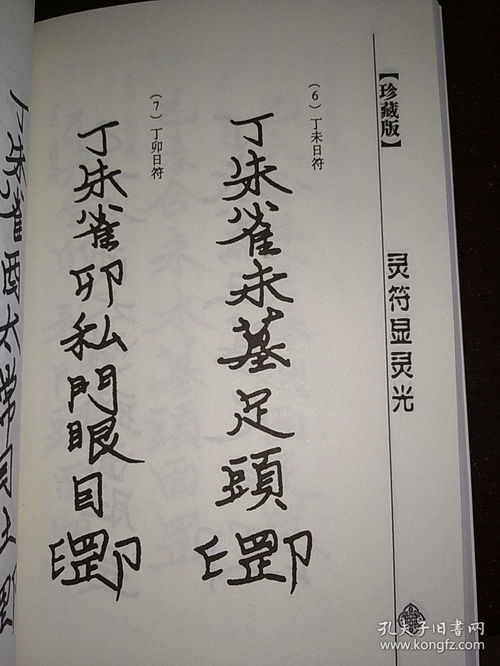 【珍藏版】
灵符显灵光
(6)丁未日符
丁朱雀未墓足頭
(7)丁卯日符
丁朱雀卯私門眼目
丁朱雀酉太常目土
孔夫子旧书网
www.kongfz.com